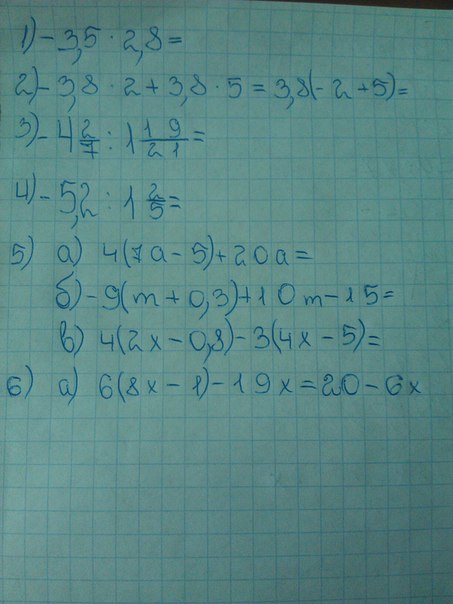 1) - 3,5 · 2,8 =
2) - 3,8 · 2 + 3,8 · 5 = 3,8(- 2 + 5) =
3) - 4 2/7 : 1 19/21 =
4) - 5,2 : 1 2/5 =
5) а) 4(7а - 5) + 20а =
б) - 9(m + 0,3) + 10m - 15 =
в) 4(2x - 0,8) - 3(4x - 5) =
6) а) 6(8x - 1) - 19x = 20 - 6x